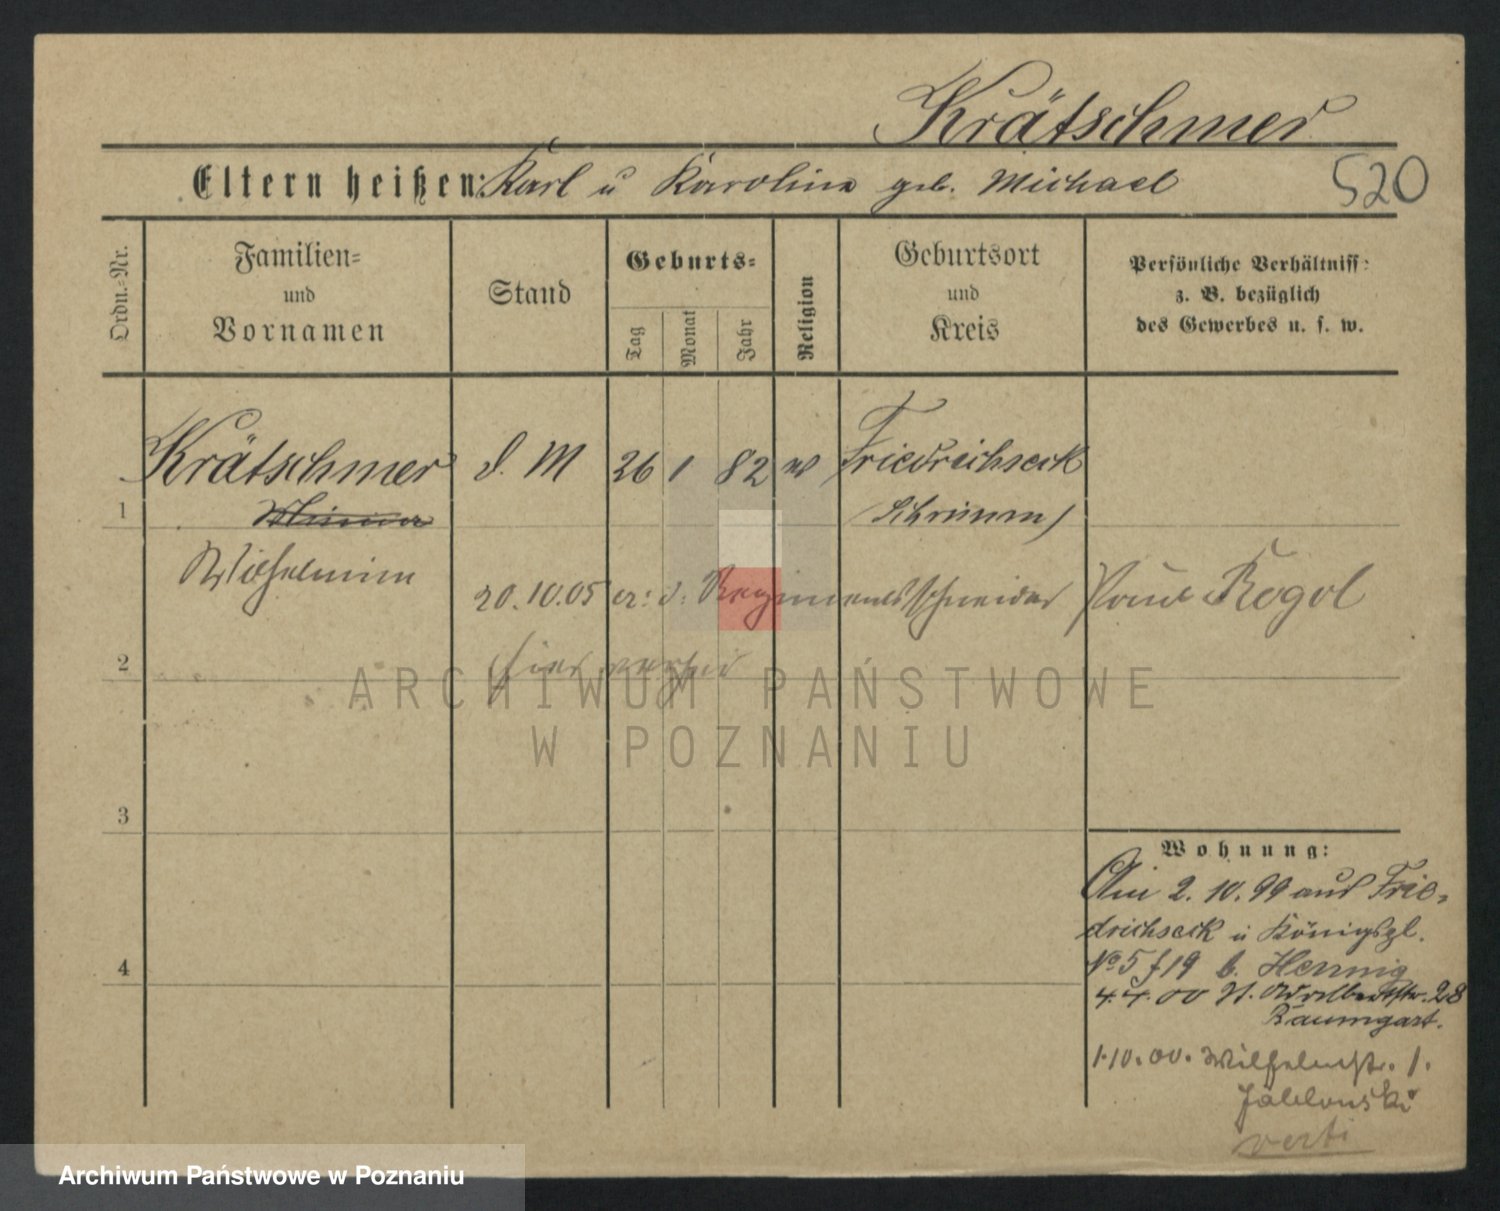 Krätschmer
Eltern heißen: Karl u Karoline geb. Michael
520
Ordn.=Nr.
Familien=
und
Vornamen
Stand
Geburts=
Tag
Monat
Jahr
Religion
Geburtsort
und
Kreis
Persönliche Verhältniss:
z. B. bezüglich
des Gewerbes u. s. w.
1
Krätschmer
Wilhelmine
d. M
26 1 82
ev
Friedrichseck
(Schrimm)
20.10.05 er: d: Regimentsschneider Paul Rogol
hier verh
2
3
4
Wohnung:
Am 2. 10. 99 aus Frie=
drichseck n Königspl.
No 5 f 19 b. Hennig
4. 4. 00 N. Adalbertstr. 28
Baumgart.
1.10.00. Wilhelmstr. 1.
Jablonski
verti
ARCHIWUM PAŃSTWOWE
W POZNANIU
Archiwum Państwowe w Poznaniu